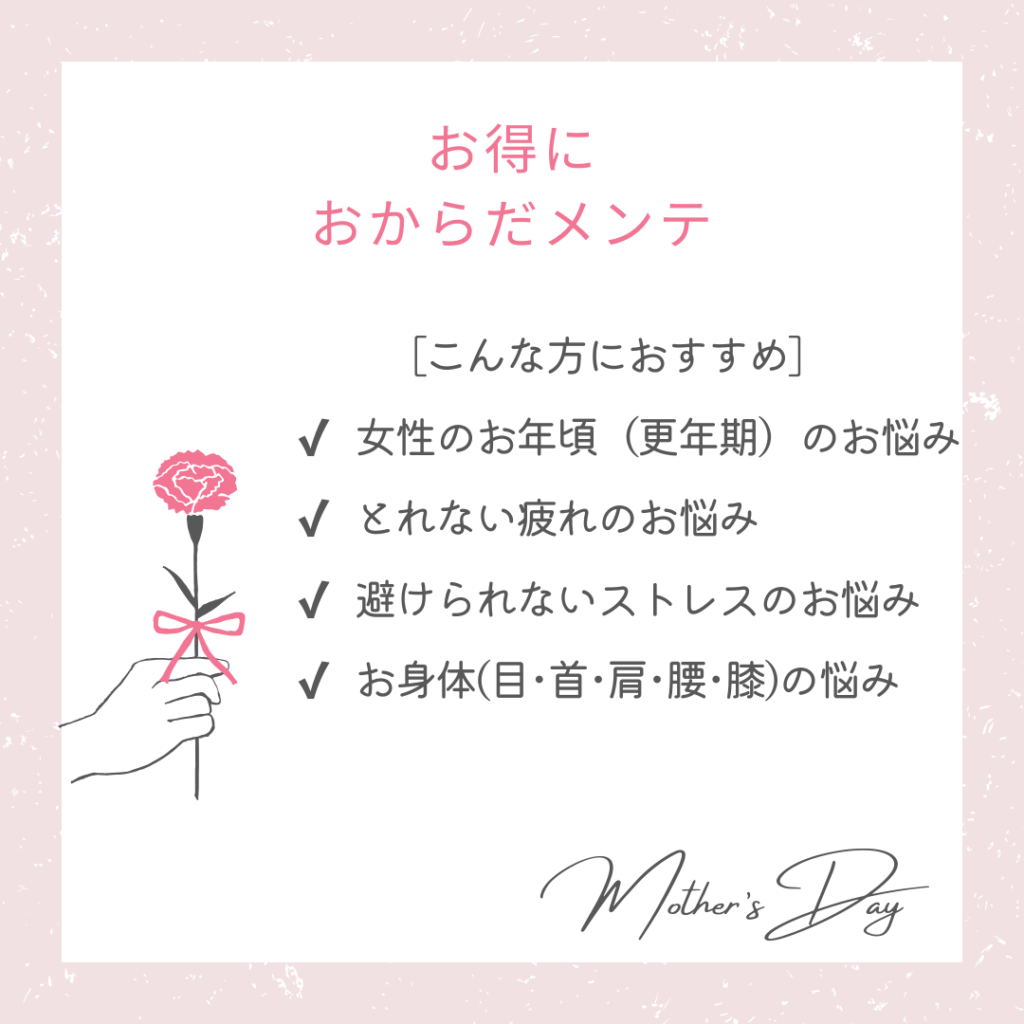 お得に
おからだメンテ
[こんな方におすすめ]
✔ 女性のお年頃（更年期）のお悩み
✔ とれない疲れのお悩み
✔ 避けられないストレスのお悩み
✔ お身体(目･首･肩･腰･膝)の悩み
Mother's Day